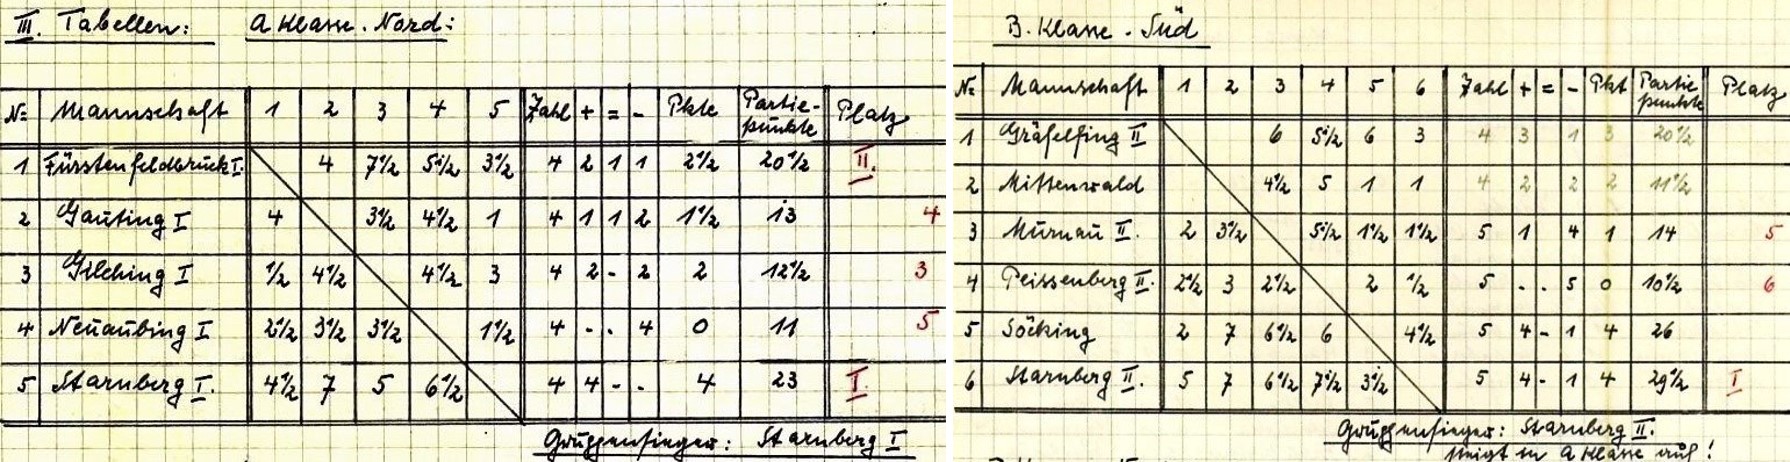 III. Tabellen: A Klasse. Nord:
No Mannschaft 1 2 3 4 5 Zahl + = - Pkte Partie-punkte Platz
1 Fürstenfeldbrück I. 4 7 1/2 5 1/2 3 1/2 4 2 1 1 2 1/2 20 1/2 II.
2 Gauting I 4 3 1/2 4 1/2 1 4 1 1 2 1 1/2 13 4
3 Gilching I 1/2 4 1/2 4 1/2 3 4 2 - 2 2 12 1/2 3
4 Neuaubing I 2 1/2 3 1/2 3 1/2 1 1/2 4 - . 4 0 11 5
5 Starnberg I. 4 1/2 7 5 6 1/2 4 4 - - 4 23 I.
Gruppensieger: Starnberg I
B. Klasse - Süd
No Mannschaft 1 2 3 4 5 6 Zahl + = - Pkt Partie punkte Platz
1 Gräfelfing II 6 5 1/2 6 3 4 3 1 3 20 1/2
2 Mittenwald 4 1/2 5 1 1 4 2 2 2 11 1/2
3 Murnau II. 2 3 1/2 5 1/2 1 1/2 1 1/2 5 1 4 1 14 5
4 Peissenberg II. 2 1/2 3 2 1/2 2 1/2 5 . . 5 0 10 1/2 6
5 Söcking 2 7 6 1/2 6 4 1/2 5 4 - 1 4 26
6 Starnberg II. 5 7 6 1/2 7 1/2 3 1/2 5 4 - 1 4 29 1/2 I
Gruppensieger: Starnberg II.
steigt in A Klasse auf!